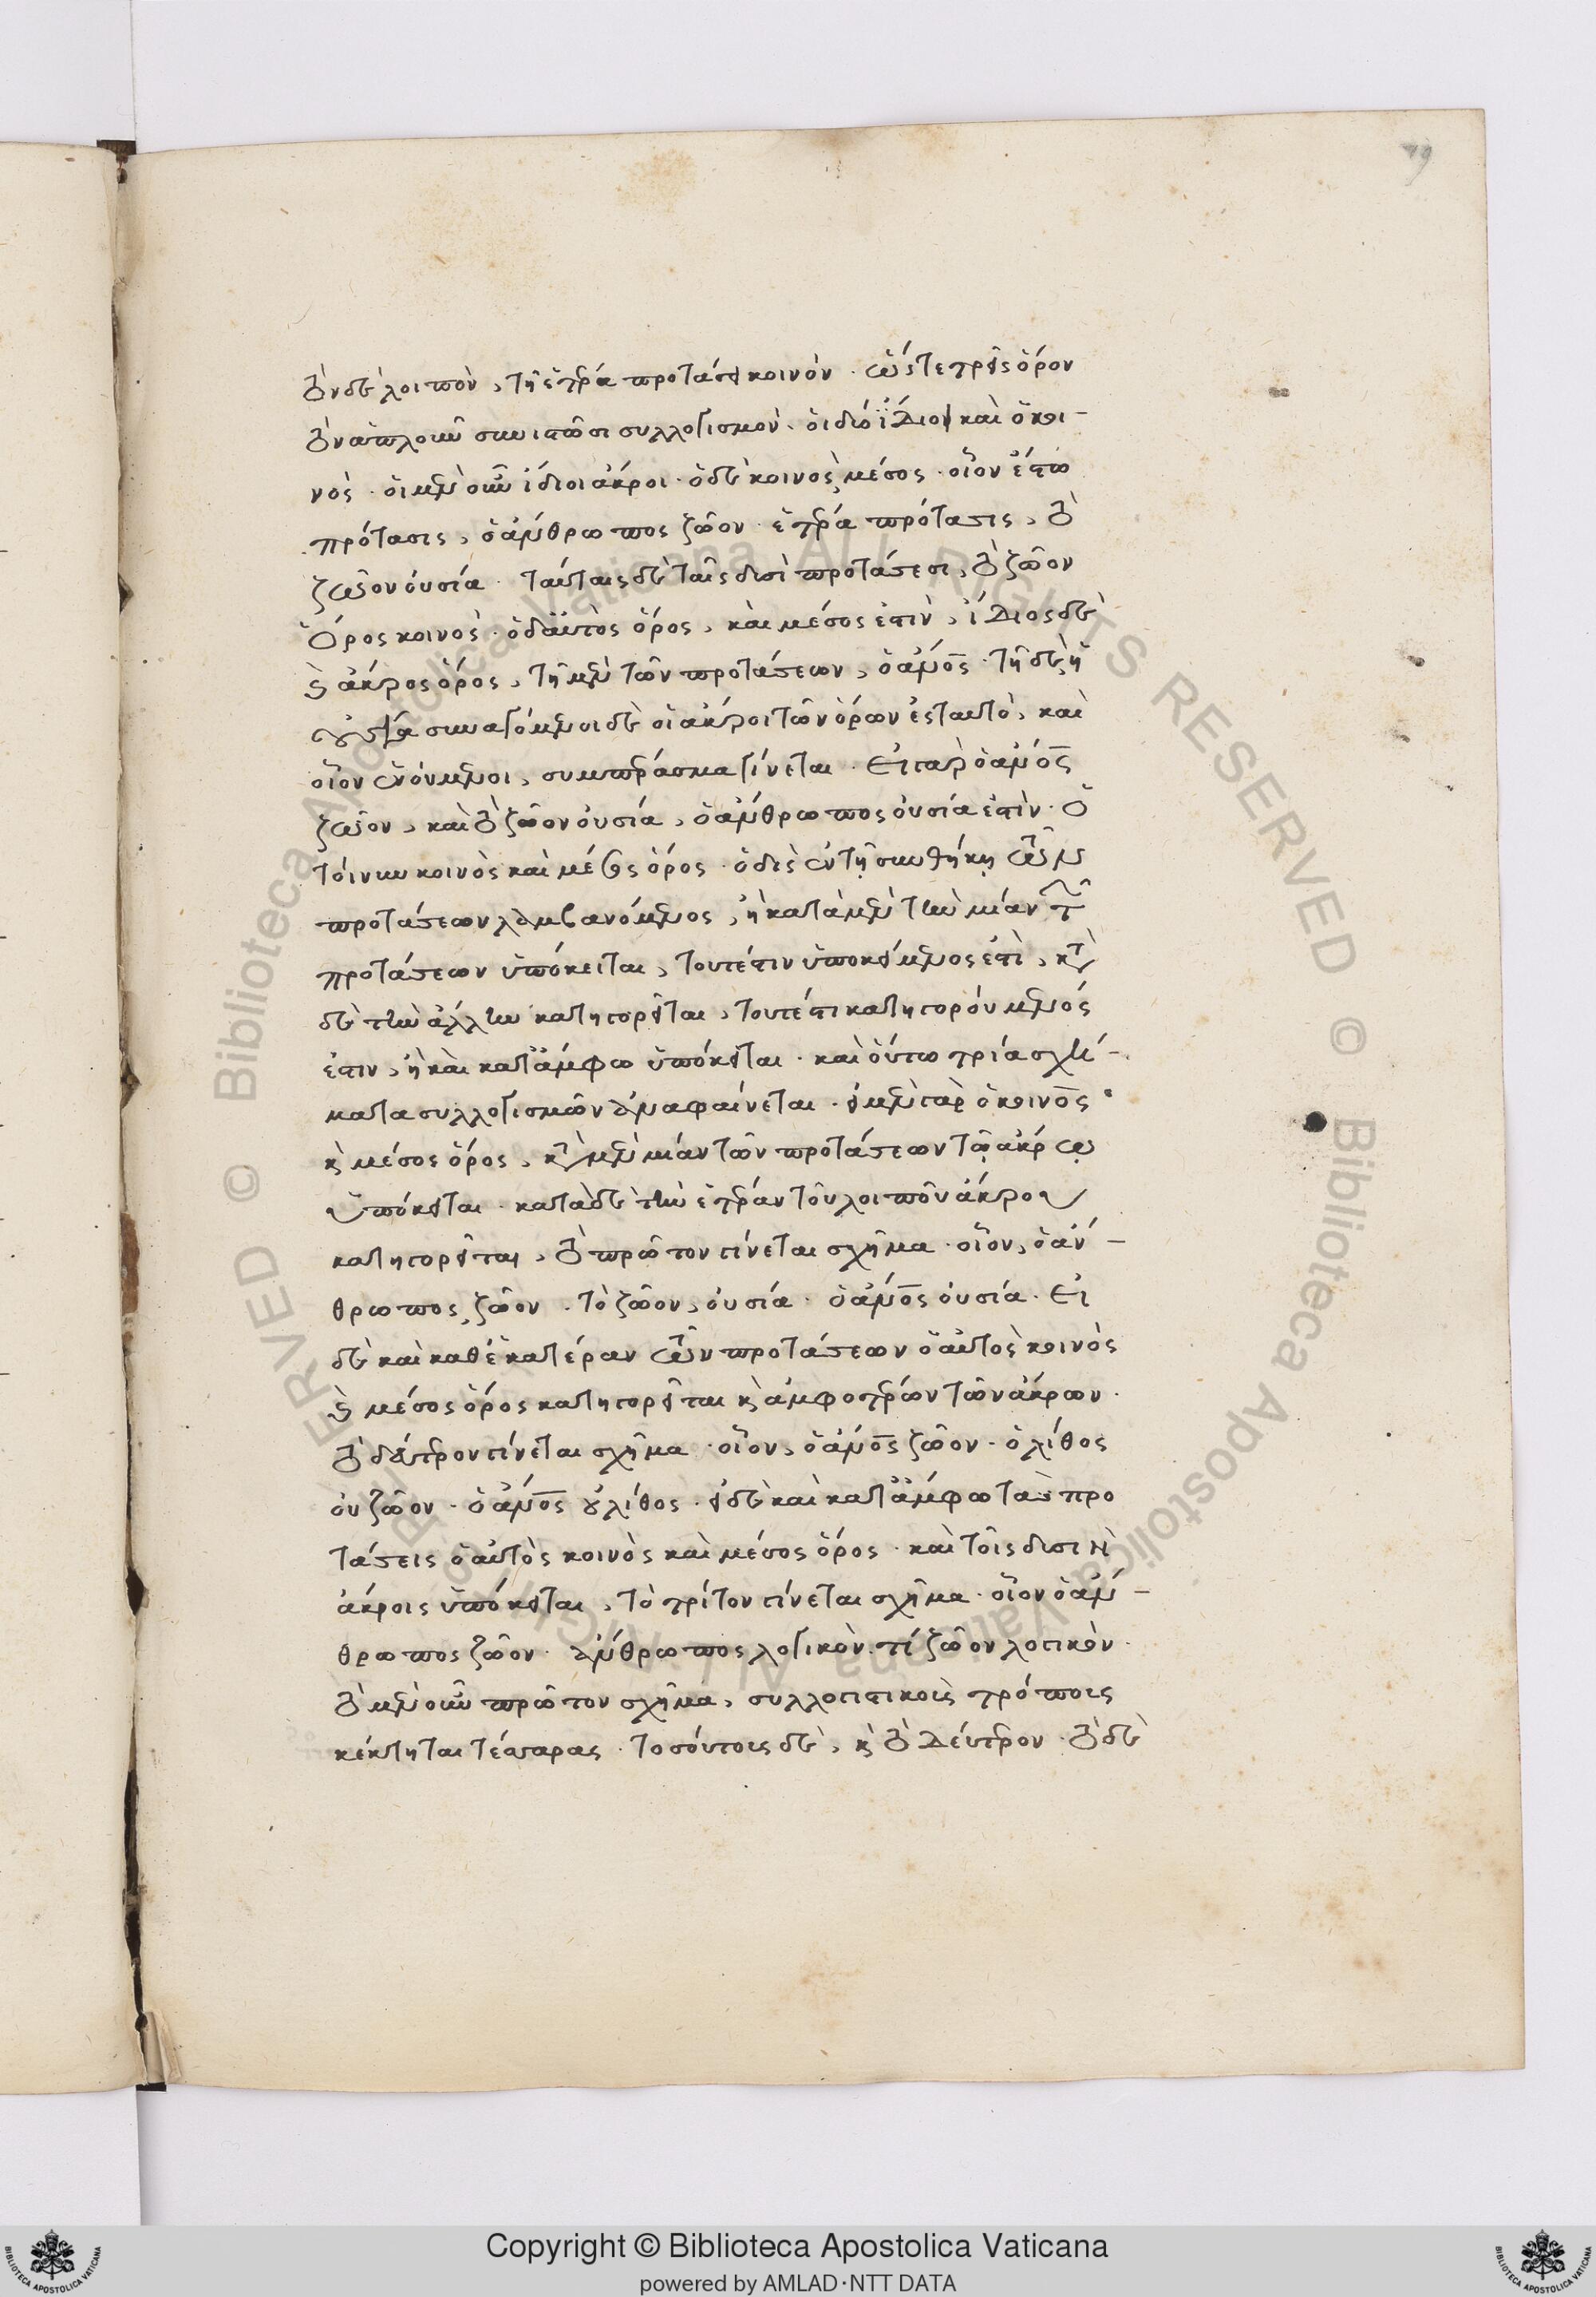 79
τὸν δὲ λοιπὸν, τῇ ἑτέρα προτάσει κοινόν. ὥστε τρεῖς ὅρον
τὸν ἁπλοῦν συνιστῶσι συλλογισμόν. οἱ δύο ἴδιοι καὶ ὁ κοι-
νός. οἱ μὲν οὖν ἴδιοι ἄκροι. ὁ δὲ κοινὸς μέσος. οἷον ἔστω
πρότασις, ὁ ἄνθρωπος ζῶον. ἑτέρα πρότασις, τὸ
ζῶον οὐσία. ταύταις δὲ ταῖς δυσὶ προτάσεσι, τὸ ζῶον
ὅρος κοινός. ὁ δ' αὐτὸς ὅρος, καὶ μέσος ἐστίν, ἴδιος δὲ
καὶ ἄκρος ὅρος, τῇ μὲν τῶν προτάσεων, ὁ ἄνος. τῇ δὲ, ἡ
οὐσία συναγόμενοι δὲ οἱ ἄκροι τῶν ὅρων ἐς ταυτὸ, καὶ
οἷον ἑνούμενοι, συμπέρασμα γίνεται. εἰ γὰρ ὁ ἄνος
ζῶον, καὶ τὸ ζῶον οὐσία, ὁ ἄνθρωπος οὐσία ἐστίν. ὁ
τοίνυν κοινὸς καὶ μέσος ὅρος. ὁ δὶς ἐν τῇ συνθήκῃ τῶν
προτάσεων λαμβανόμενος, ἢ κατὰ μὲν τὴν μίαν τῶν
προτάσεων ὑπόκειται, τουτέστιν ὑποκείμενος ἐστὶ, κατὰ
δὲ τὴν ἄλλην κατηγορεῖται, τουτέστι κατηγορούμενός
ἐστιν, ἢ καὶ κατ' ἄμφω ὑπόκειται. καὶ οὕτω τρία σχή-
ματα συλλογισμῶν ἀναφαίνεται. εἰ μὲν γὰρ ὁ κοινὸς
καὶ μέσος ὅρος, κατὰ μὲν μίαν τῶν προτάσεων τῷ ἄκρῳ
ὑπόκειται. κατὰ δὲ τὴν ἑτέραν τοῦ λοιποῦ ἄκρου
κατηγορεῖται, τὸ πρῶτον γίνεται σχῆμα. οἷον, ὁ ἄν-
θρωπος ζῶον. τὸ ζῶον, οὐσία. ὁ ἄνος οὐσία. εἰ
δὲ καὶ καθ' ἑκατέραν τῶν προτάσεων ὁ αὐτὸς κοινὸς
καὶ μέσος ὅρος κατηγορεῖται καὶ ἀμφοτέρων τῶν ἄκρων.
τὸ δεύτερον γίνεται σχῆμα. οἷον, ὁ ἄνος ζῶον. ὁ λίθος
οὐ ζῶον. ὁ ἄνος οὐ λίθος. εἰ δὲ καὶ κατ' ἄμφω τὰς προ
τάσεις ὁ αὐτὸς κοινὸς καὶ μέσος ὅρος. καὶ τοῖς δυσὶν
ἄκροις ὑπόκειται, τὸ τρίτον γίνεται σχῆμα. οἷον ὁ ἄν-
θρωπος ζῶον. ἄνθρωπος λογικόν. τί ζῶον λογικόν.
τὸ μὲν οὖν πρῶτον σχῆμα, συλλογιστικοὺς τρόπους
κέκτηται τέσσαρας. τοσούτους δὲ, καὶ τὸ δεύτερον. τὸ δὲ
Copyright © Biblioteca Apostolica Vaticana
powered by AMLAD·NTT DATA